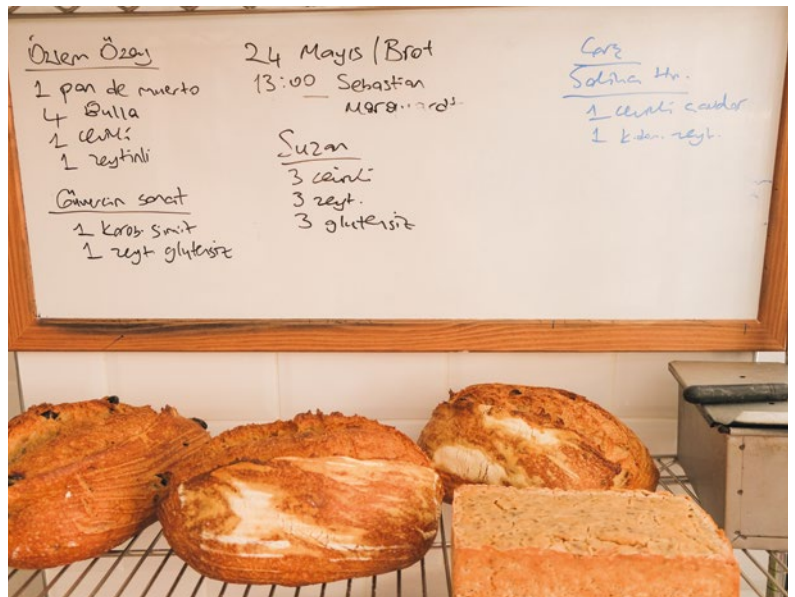 Özlem Özay
1 pan de muerto
4 Bulla
1 cevizli
1 zeytinli
Güvercin sanat
1 karob. simit
1 zeyt. glutensiz
24 Mayıs / Brot
13:00 Sebastian
Suzan
3 cevizli
3 zeyt.
3 glutensiz
Saliha Hn.
1 cevizli çavdar
1 zeyt.